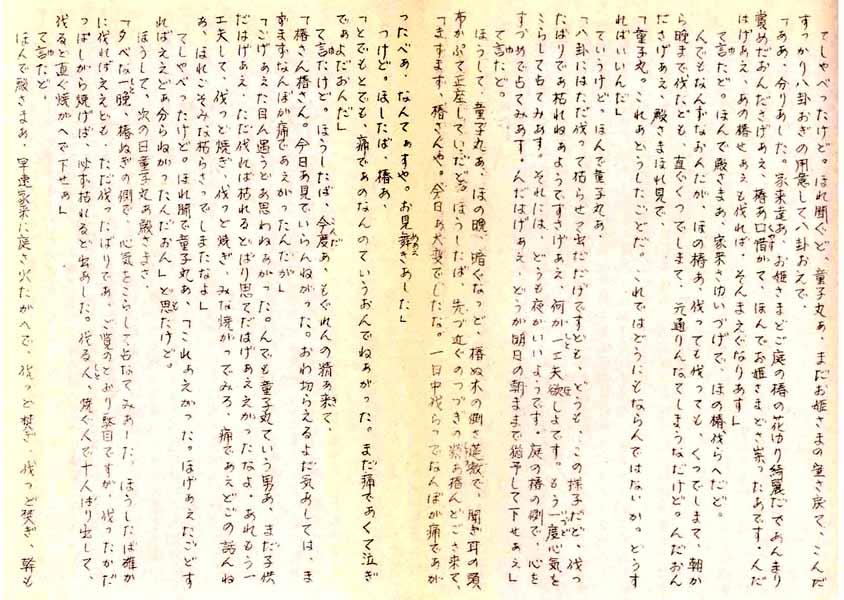 てしゃべったけど。ほれ聞ぐど、童子丸ぁ、まだお姫さまの室さ戻て、こんだ
すっかり八卦おぎの用意して八卦おえで、
「ああ、分りあした。家来達ぁ、お姫さまどご庭の椿の花ゆり綺麗だであんまり
賞めだおんださげぁえ、椿ぁ口惜がて、ほんでお姫さまどさ祟ったあです。んだ
はげぁえ、あの椿せぁえも伐れば、そんまえぐなりあす」
て言たど。ほんで殿さまあ、家来さゆいつげで、ほの椿伐らへだど。
んでもなんずなおんだが、ほの椿あ、伐っても伐っても、くっでしまて、朝か
ら晩まで伐たども、直ぐくっでしまて、元通りんなてしまうなだけど。んだおん
ださげぁえ、殿さまほれ見で、
「童子丸。これあどうしたごどだ。これではどうにもならんではないか。どうす
ればいいんだ」
ていうけど。ほんで童子丸ぁ、
「八卦にはただ伐って枯らせて出だだけですども、どうも、この様子だど、伐っ
たばりであ枯れねぁようですさげぁえ、何が一工夫欲しよです。もう一度心気を
こらして占てみあす。それには、どうも夜がいいようです。庭の椿の側で、心を
すずめで占てみあす。んだはげぁえ、どうが明日の朝まま猶予して下せぁえ」
て言たど。
ほうして、童子丸あ、ほの晩、暗ぐなっど、椿ぬ木の側さ莚敷で、聞ぎ耳の頭
布かぶて正座していだど。ほうしたば、先づ近ぐのつづぎの精ぁ椿んどごさ来て、
「きすます、椿さんや。今日ぁ大変でしたな。一日中伐らっでなんぼが痛であが
ったべぁ、なんてぁすや。お見舞ぎあした」
つけど。ほしたば、椿あ、
「とでもとでも、痛でぁのなんのていうおんでねぁがった。まだ痛であくて泣ぎ
でぁよだおんだ」
て言たけど。ほうしたば、今度ぁ、もぐれんの精ぁ来て、
「椿さん椿さん。今日ぁ見でいらんねがった。おわ切らえるよだ気ぁしては、ま
ずまずなんぼが痛であえがったんだが」
「ごげぁえた目ん遇うどあ思わねぁがった。んでも童子丸ていう男あ、まだ子供
だはげぁえ、ただ伐れば枯れるどばり思てだはげぁええがったなよ、あれもう一
工夫して、伐っど焼ぎ、伐っど焼ぎ、みな焼がってみろ、痛であえどごの話んね
あ、ほれごそみな枯らさってしまたなよ」
てしゃべったけど。ほれ聞で童子丸ぁ、「これぁえがった。ほげぁえたごどす
ればええどぁ分らねがったんだおん」と思たけど。
ほうして、次の日童子丸ぁ殿さまさ、
「夕べな一晩、椿ぬぎの側で、心気をこらして占なてみあーた。ほうしたば確か
に伐ればええども、ただ伐ったばりであ、ご覧のとおり駄目ですが、伐ったかだ
っぱしがら焼げば、必ず枯れると出あした。伐る人、焼ぐ人で十人ばり出して、
伐ると直ぐ焼がへで下せぁえ」
て言たど。
ほんで殿さまぁ、早速家来に庭さ火たがへで、伐っど焚ぎ、伐っど焚ぎ、幹も